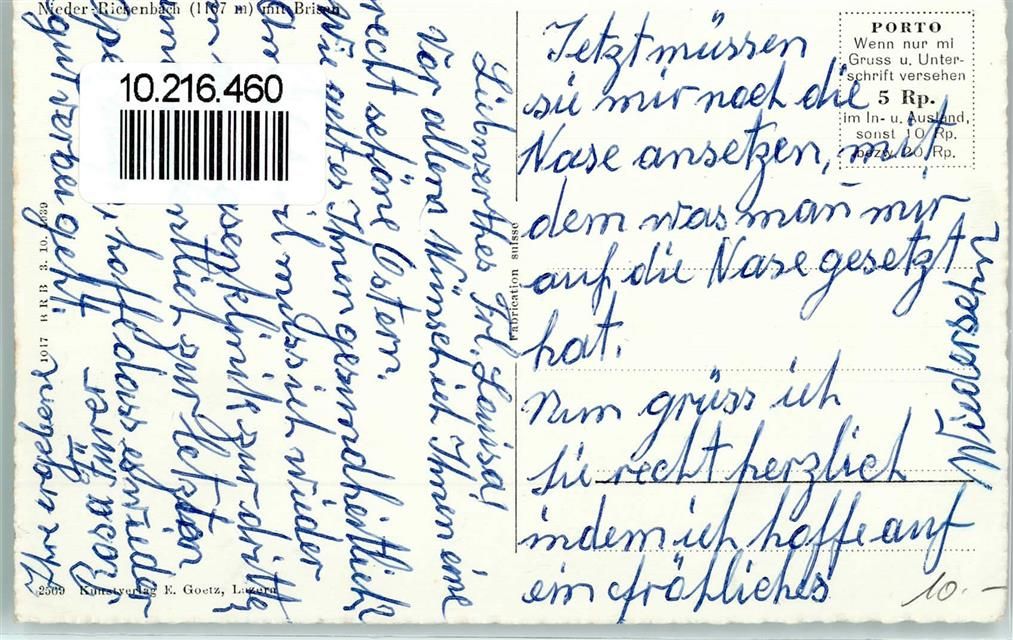 Nieder-Rickenbach (1167 m) mit Brisen
10.216.460
Liebwerthes Frl. Louisa!
Vor allem Wünsch ich Ihnen eine
recht schöne Ostern.
Wie geht es Ihnen gesundheitlich
ich muss ich wieder
in zur dritte
zur letzten
hoffe das es wieder
gut vorbei geht.
Ihre ergebene
Fabrication suisse
1017 R R B 3. 10. 1939
2509 Kunstverlag E. Goetz, Luzern
PORTO
Wenn nur mi
Gruss u. Unter-
schrift versehen
5 Rp.
im In- u. Ausland,
sonst 10 Rp.
bezw. 20 Rp.
Jetzt müssen
sie mir noch die
Nase ansetzen, mit
dem was man mir
auf die Nase gesetzt
hat.
Nun grüss ich
Sie recht herzlich
indem ich hoffe auf
ein fröhliches
Wiedersehn
10.-